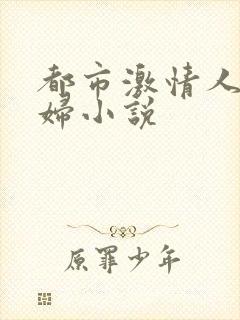 都市激情人
婦小說
原罪少年